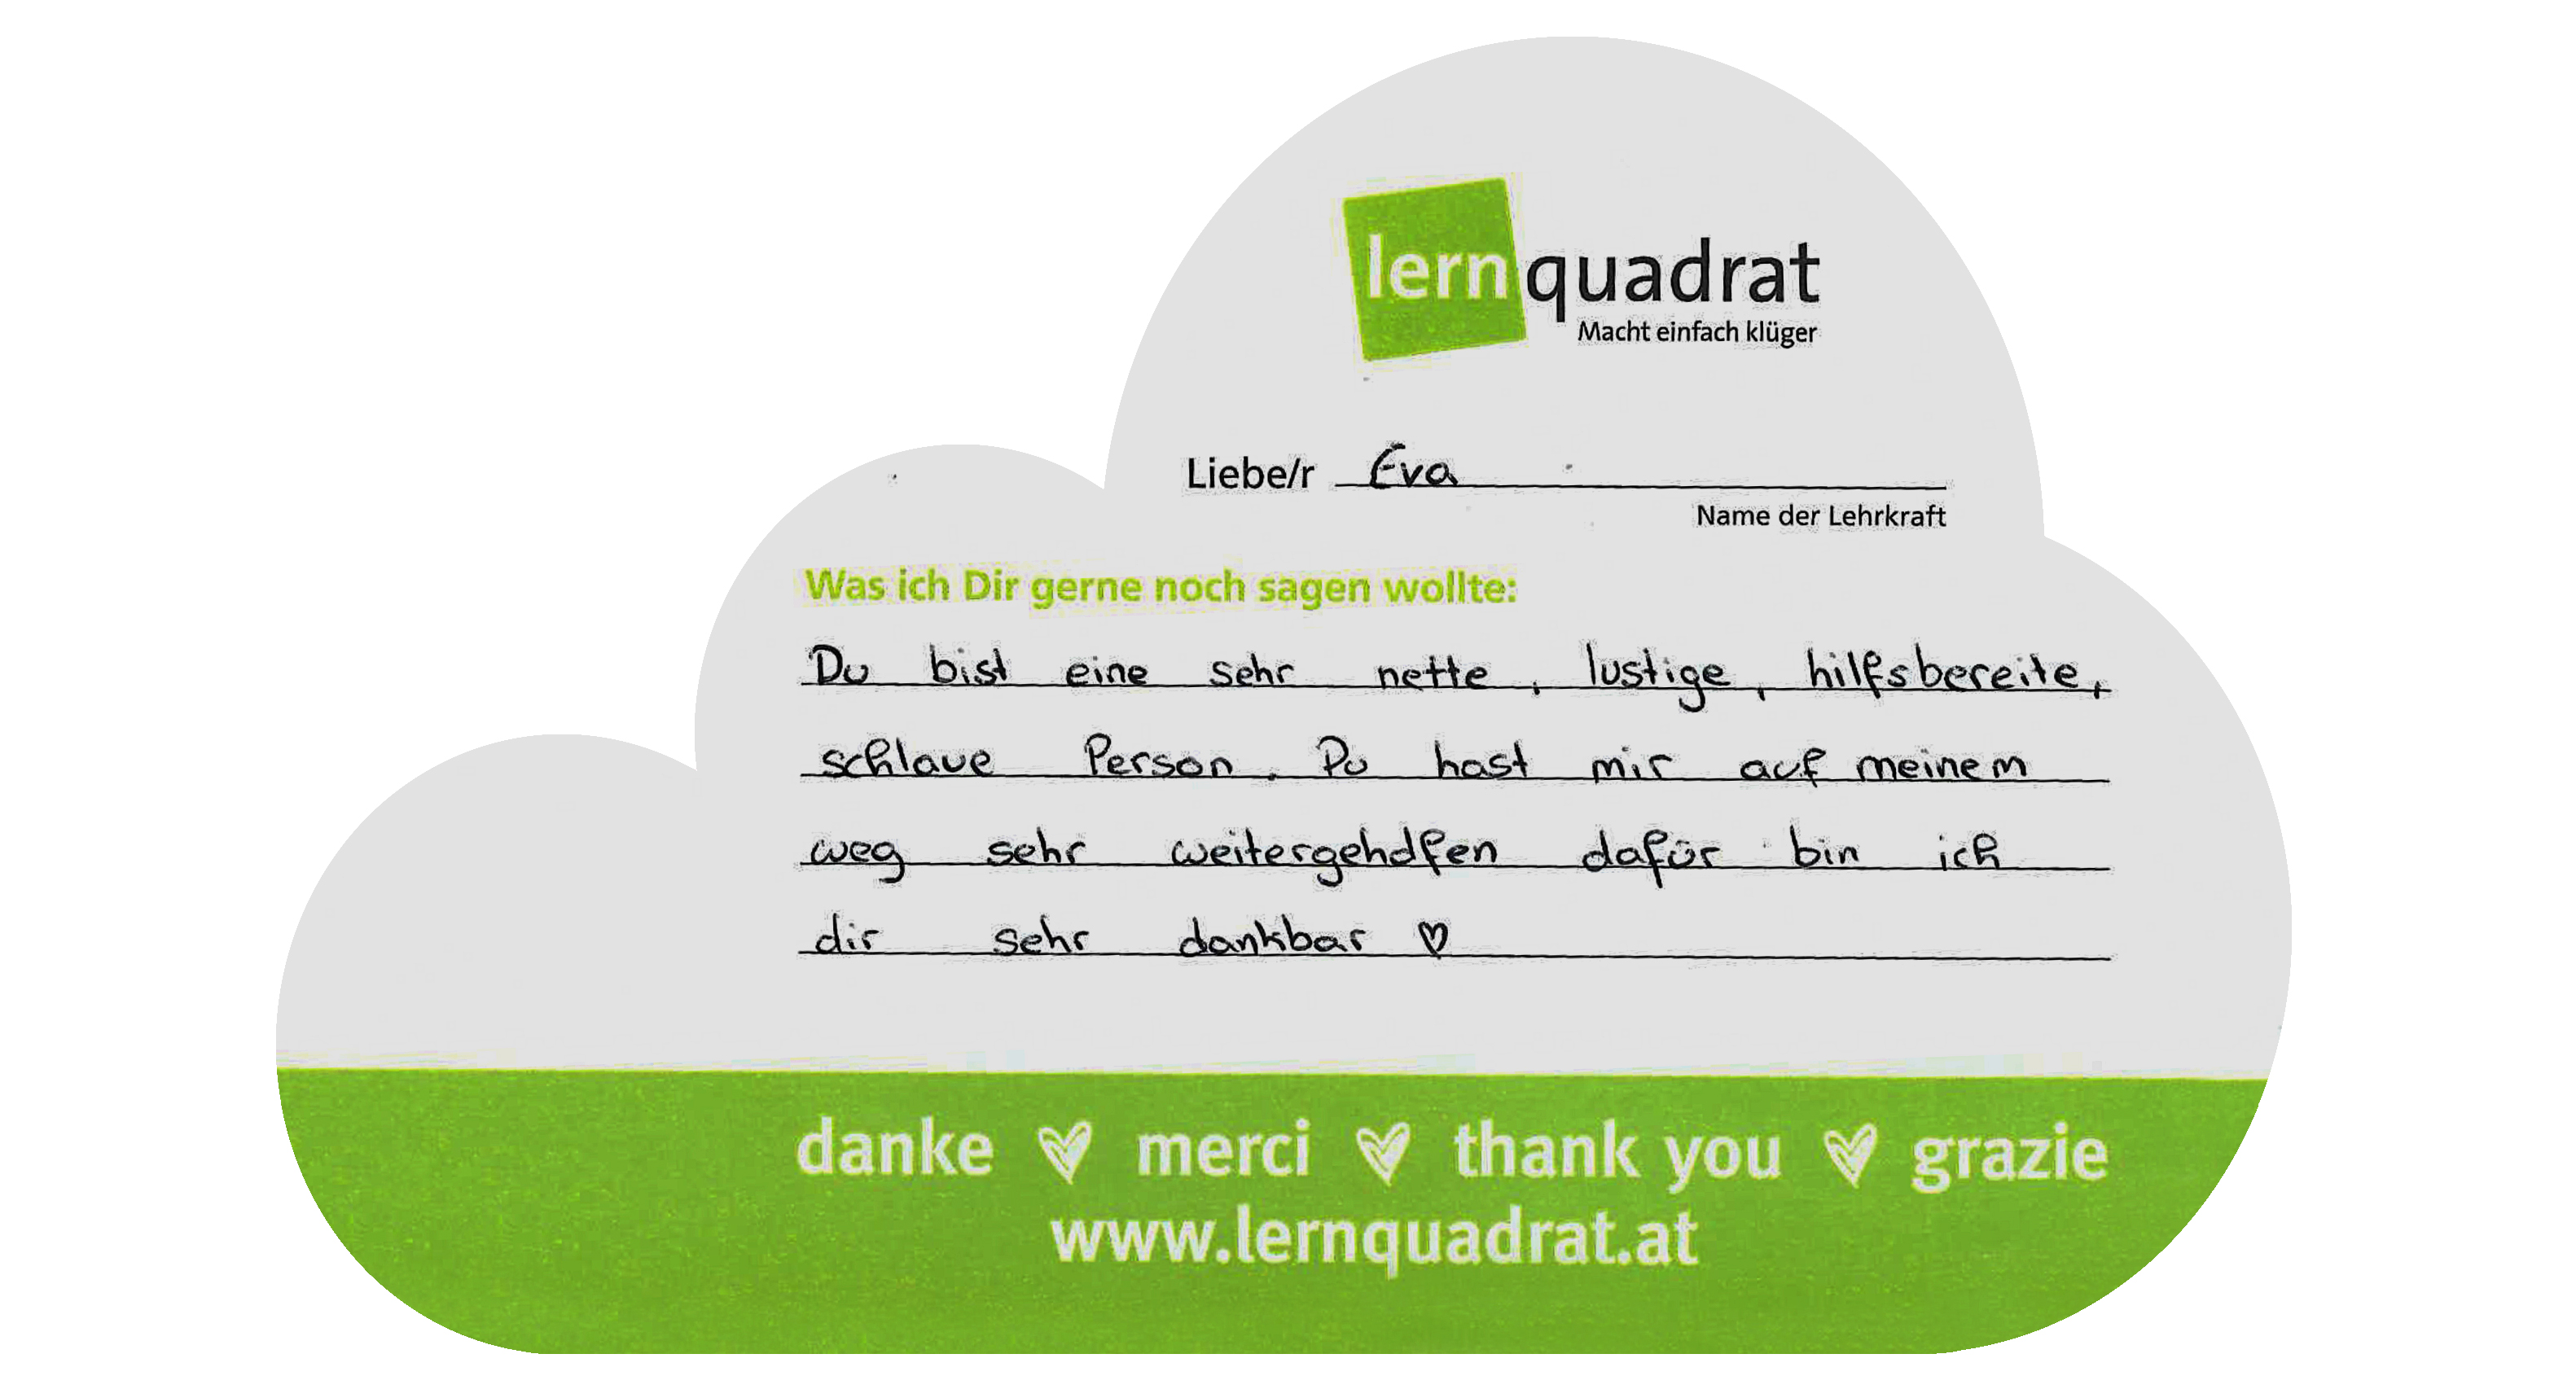 lernquadrat
Macht einfach klüger
Liebe/r Eva
Name der Lehrkraft
Was ich Dir gerne noch sagen wollte:
Du bist eine sehr nette, lustige, hilfsbereite,
schlaue Person. Du hast mir auf meinem
weg sehr weitergeholfen dafür bin ich
dir sehr dankbar ♡
danke ♥ merci ♥ thank you ♥ grazie
www.lernquadrat.at